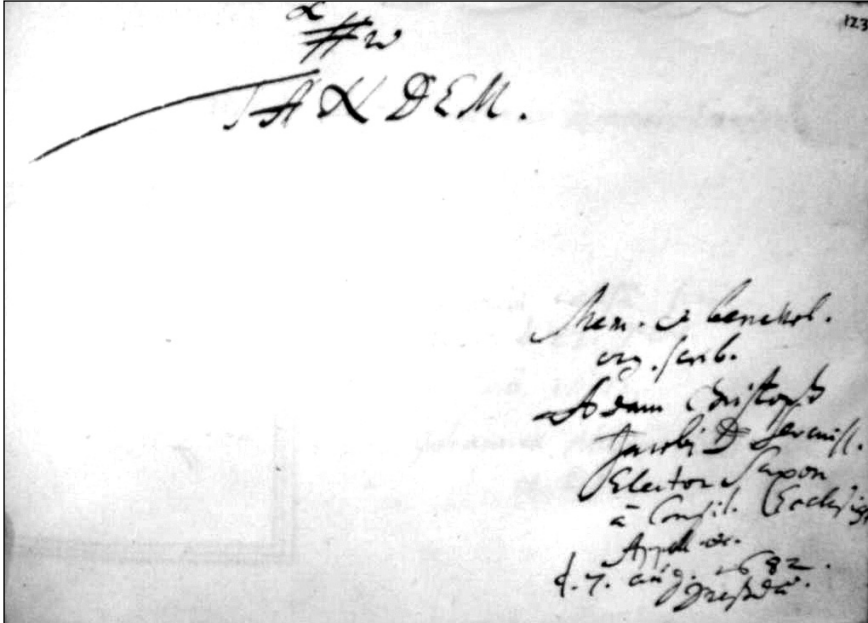 123
TANDEM.
Mem. et benevol.
erg. scrib.
Adam Christoph
Jacobi D Sereniss.
Elector Saxon
à Consil. Eccles.
Appell.
d. 7. aug. 1682.
Dresdæ.